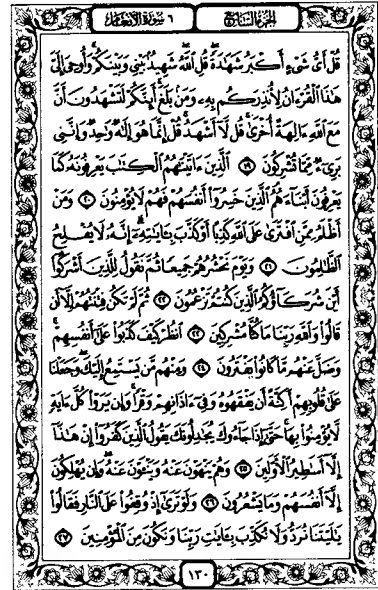 الجزء السابع ٦ سورة الأنعام
قُلْ أَىُّ شَىْءٍ أَكْبَرُ شَهَـٰدَةً قُلِ ٱللَّهُ شَهِيدٌۢ بَيْنِى وَبَيْنَكُمْ وَأُوحِىَ إِلَىَّ
هَـٰذَا ٱلْقُرْءَانُ لِأُنذِرَكُم بِهِۦ وَمَنۢ بَلَغَ أَئِنَّكُمْ لَتَشْهَدُونَ أَنَّ
مَعَ ٱللَّهِ ءَالِهَةً أُخْرَىٰ قُل لَّآ أَشْهَدُ قُلْ إِنَّمَا هُوَ إِلَـٰهٌ وَٰحِدٌ وَإِنَّنِى
بَرِىٓءٌ مِّمَّا تُشْرِكُونَ ١٩ ٱلَّذِينَ ءَاتَيْنَـٰهُمُ ٱلْكِتَـٰبَ يَعْرِفُونَهُۥ كَمَا
يَعْرِفُونَ أَبْنَآءَهُمُ ٱلَّذِينَ خَسِرُوٓا۟ أَنفُسَهُمْ فَهُمْ لَا يُؤْمِنُونَ ٢٠ وَمَنْ
أَظْلَمُ مِمَّنِ ٱفْتَرَىٰ عَلَى ٱللَّهِ كَذِبًا أَوْ كَذَّبَ بِـَٔايَـٰتِهِۦٓ إِنَّهُۥ لَا يُفْلِحُ
ٱلظَّـٰلِمُونَ ٢١ وَيَوْمَ نَحْشُرُهُمْ جَمِيعًا ثُمَّ نَقُولُ لِلَّذِينَ أَشْرَكُوٓا۟
أَيْنَ شُرَكَآؤُكُمُ ٱلَّذِينَ كُنتُمْ تَزْعُمُونَ ٢٢ ثُمَّ لَمْ تَكُن فِتْنَتُهُمْ إِلَّآ أَن
قَالُوا۟ وَٱللَّهِ رَبِّنَا مَا كُنَّا مُشْرِكِينَ ٢٣ ٱنظُرْ كَيْفَ كَذَبُوا۟ عَلَىٰٓ أَنفُسِهِمْ
وَضَلَّ عَنْهُم مَّا كَانُوا۟ يَفْتَرُونَ ٢٤ وَمِنْهُم مَّن يَسْتَمِعُ إِلَيْكَ وَجَعَلْنَا
عَلَىٰ قُلُوبِهِمْ أَكِنَّةً أَن يَفْقَهُوهُ وَفِىٓ ءَاذَانِهِمْ وَقْرًا وَإِن يَرَوْا۟ كُلَّ ءَايَةٍ
لَّا يُؤْمِنُوا۟ بِهَا حَتَّىٰٓ إِذَا جَآءُوكَ يُجَـٰدِلُونَكَ يَقُولُ ٱلَّذِينَ كَفَرُوٓا۟ إِنْ هَـٰذَآ
إِلَّآ أَسَـٰطِيرُ ٱلْأَوَّلِينَ ٢٥ وَهُمْ يَنْهَوْنَ عَنْهُ وَيَنْـَٔوْنَ عَنْهُ وَإِن يُهْلِكُونَ
إِلَّآ أَنفُسَهُمْ وَمَا يَشْعُرُونَ ٢٦ وَلَوْ تَرَىٰٓ إِذْ وُقِفُوا۟ عَلَى ٱلنَّارِ فَقَالُوا۟
يَـٰلَيْتَنَا نُرَدُّ وَلَا نُكَذِّبَ بِـَٔايَـٰتِ رَبِّنَا وَنَكُونَ مِنَ ٱلْمُؤْمِنِينَ ٢٧
١٣٠